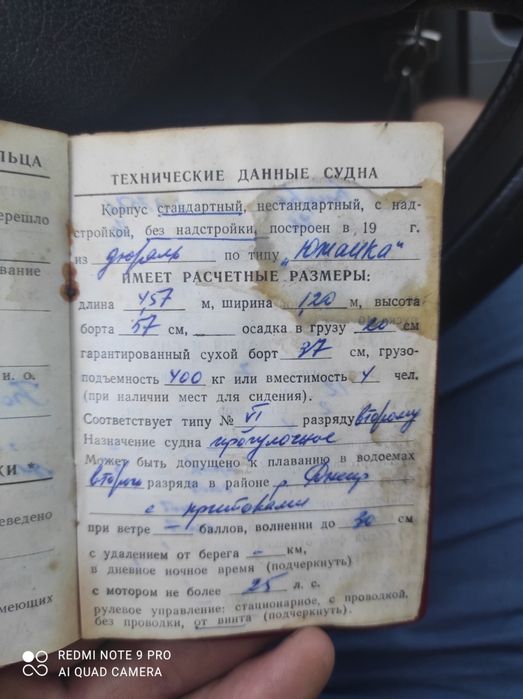 ЛЬЦА
ерешло
ование
и. о.
КИ *
еведено
меющих
ТЕХНИЧЕСКИЕ ДАННЫЕ СУДНА
Корпус стандартный, нестандартный, с над-
стройкой, без надстройки, построен в 19 г.
из дюраль по типу „Южанка"
ИМЕЕТ РАСЧЕТНЫЕ РАЗМЕРЫ:
длина 4,57 м, ширина 1,20 м, высота
борта 57 см, осадка в грузу 20 см
гарантированный сухой борт 37 см, грузо-
подъемность 400 кг или вместимость 4 чел.
(при наличии мест для сидения).
Соответствует типу № VI разряду второму
Назначение судна прогулочное
Может быть допущено к плаванию в водоемах
второго разряда в районе р. Днепр
с притоками
при ветре — баллов, волнении до 30 см
с удалением от берега – км,
в дневное ночное время (подчеркнуть)
с мотором не более 25 л. с.
рулевое управление: стационарное, с проводкой,
без проводки, от винта (подчеркнуть).
REDMI NOTE 9 PRO
AI QUAD CAMERA